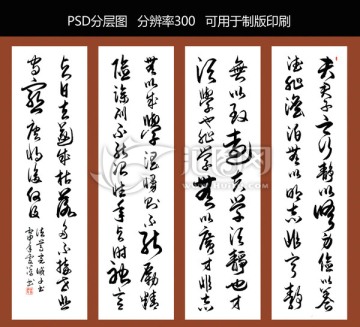 PSD分层图 分辨率300 可用于制版印刷
夫君子之行静以修身俭以养
德非澹泊無以明志非宁静
無以致远夫学须静也才
须學也非学無以广才非志
無以成學淫慢则不能勵精
险躁则不能治性年与时驰意
与日去遂成枯落多不接世悲
守窮庐将復何及
诸葛亮诫子书